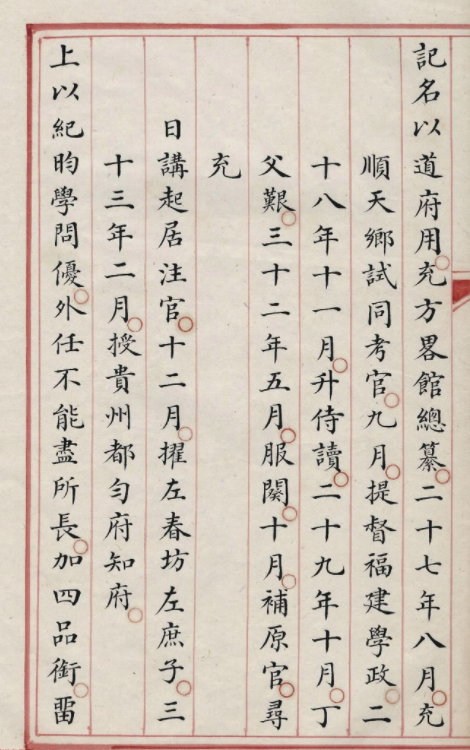 記名以道府用。充方畧館總纂。二十七年八月。充
順天鄉試同考官。九月。提督福建學政。二
十八年十一月。升侍讀。二十九年十月。丁
父艱。三十二年五月。服闋。十月。補原官。尋
充
日講起居注官。十二月。擢左春坊左庶子。三
十三年二月。授貴州都勻府知府。
上以紀昀學問優。外任不能盡所長。加四品銜。畱